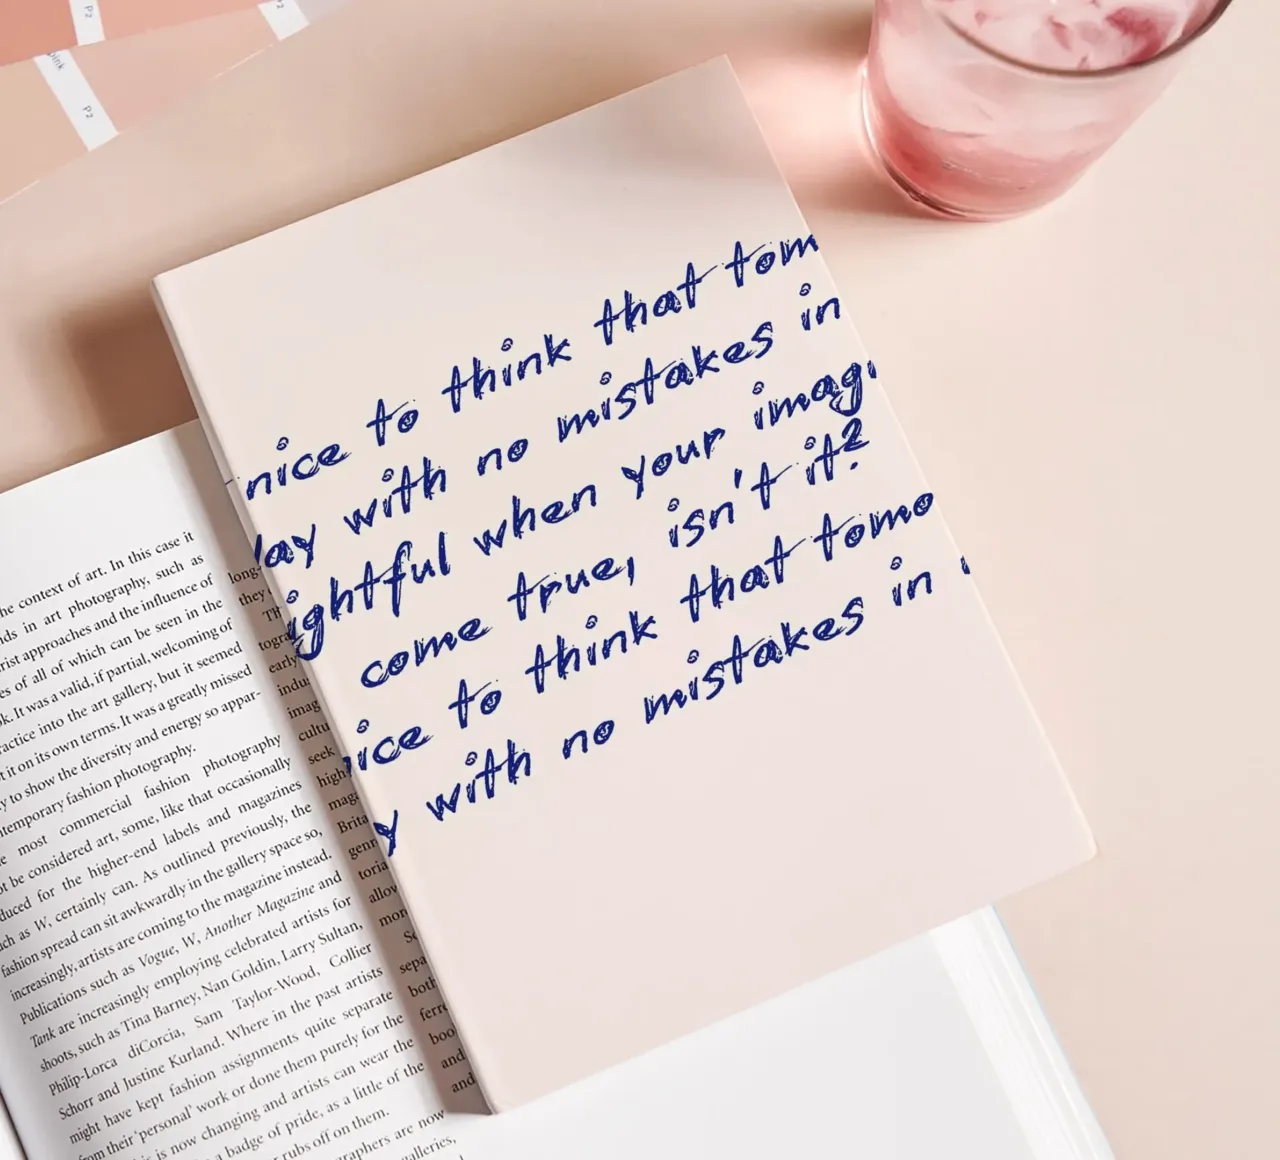 P2
P2
P2
nice to think that tom
lay with no mistakes in
ightful when your imagi
come true, isn't it?
ice to think that tomo
y with no mistakes in
he context of art. In this case it
ds in art photography, such as
rist approaches and the influence of
es of all of which can be seen in the
k. It was a valid, if partial, welcoming of
ractice into the art gallery, but it seemed
t it on its own terms. It was a greatly missed
y to show the diversity and energy so appar-
temporary fashion photography.
e most commercial fashion photography
t be considered art, some, like that occasionally
duced for the higher-end labels and magazines
ch as W, certainly can. As outlined previously, the
fashion spread can sit awkwardly in the gallery space so,
increasingly, artists are coming to the magazine instead.
Publications such as Vogue, W, Another Magazine and
Tank are increasingly employing celebrated artists for
shoots, such as Tina Barney, Nan Goldin, Larry Sultan,
Philip-Lorca diCorcia, Sam Taylor-Wood, Collier
Schorr and Justine Kurland. Where in the past artists
might have kept fashion assignments quite separate
from their 'personal' work or done them purely for the
is is now changing and artists can wear the
a badge of pride, as a little of the
r rubs off on them.
graphers are now
galleries,
long-
they
Th
togr
early
indu
imag
cultu
seek
high
maga
Brita
genr
toria
allow
mor
Se
sepa
both
ferre
boo
and
and